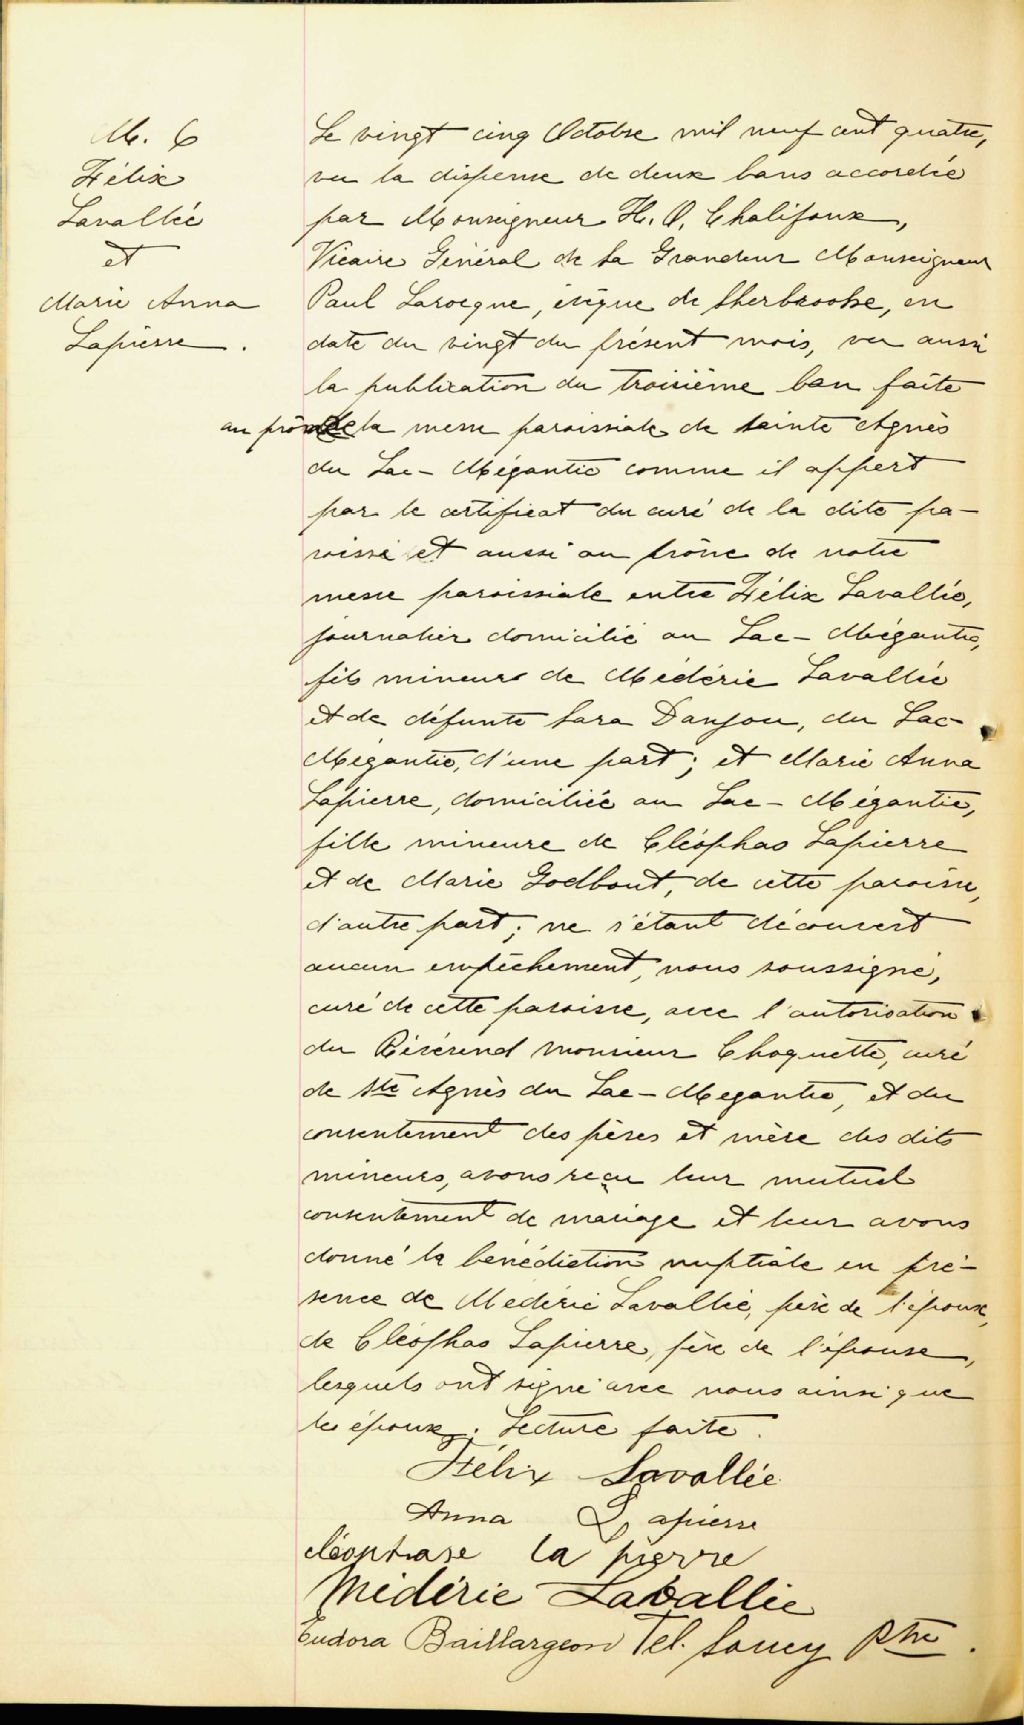 M. 6
Félix
Lavallée
et
Marie Anna
Lapierre.
Le vingt cinq Octobre mil neuf cent quatre,
vu la dispense de deux bans accordée
par Monseigneur H. O. Chalifoux,
Vicaire Général de Sa Grandeur Monseigneur
Paul Larocque, évêque de Sherbrooke, en
date du vingt du présent mois, vu aussi
la publication du troisième ban faite
au prône de la messe paroissiale de Sainte Agnès
du Lac-Mégantic comme il appert
par le certificat du curé de la dite pa-
roisse et aussi au prône de notre
messe paroissiale entre Félix Lavallée,
journalier domicilié au Lac-Mégantic,
fils mineur de Médéric Lavallée
et de défunte Sara Danjou, du Lac-
Mégantic, d'une part; et Marie Anna
Lapierre, domiciliée au Lac-Mégantic,
fille mineure de Cléophas Lapierre
et de Marie Godbout, de cette paroisse,
d'autre part; ne s'étant découvert
aucun empêchement, nous soussigné,
curé de cette paroisse, avec l'autorisation
du Révérend Monsieur Choquette, curé
de Ste Agnès du Lac-Megantic, et du
consentement des pères et mère des dits
mineurs, avons reçu leur mutuel
consentement de mariage et leur avons
donné la bénédiction nuptiale en pré-
sence de Médéric Lavallée, père de l'époux,
de Cléophas Lapierre, père de l'épouse,
lesquels ont signé avec nous ainsi que
les époux. Lecture faite.
Félix Lavallée
Anna Lapierre
cléophase la pierre
Médéric Lavallée
Eudora Baillargeon Tel. Soucy Ptre.